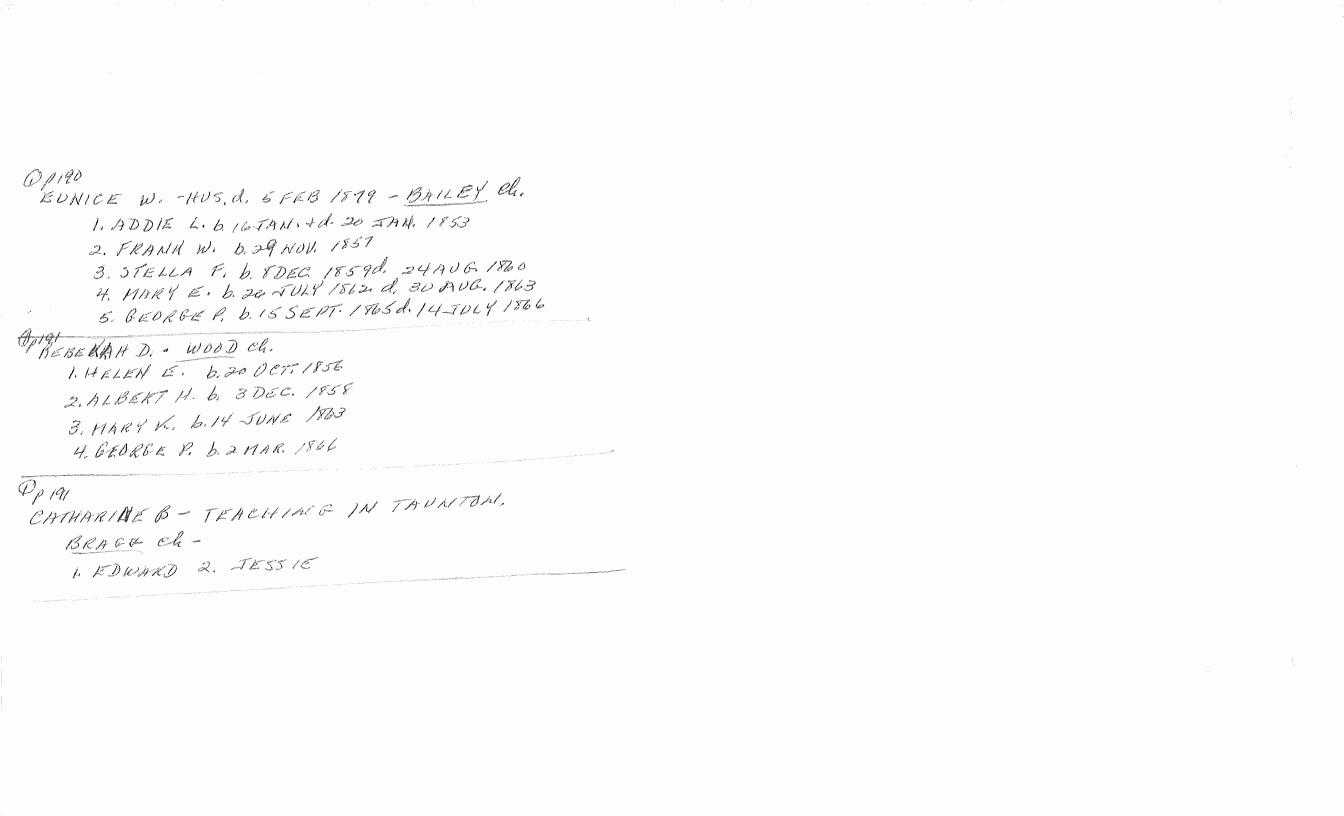 p190
EUNICE W. - HUS. d. 5 FEB 1879 - BAILEY ch.
1. ADDIE L. b 16 JAN. + d. 20 JAN. 1853
2. FRANK W. b. 29 NOV. 1857
3. STELLA F. b. 8 DEC. 1859 d. 24 AUG. 1860
4. MARY E. b. 20 JULY 1862 d. 30 AUG. 1863
5. GEORGE P. b. 15 SEPT. 1865 d. 14 JULY 1866
p191
REBEKAH D. • WOOD ch.
1. HELEN E. b. 20 OCT. 1856
2. ALBERT H. b. 3 DEC. 1858
3. MARY K. b. 14 JUNE 1863
4. GEORGE P. b. 2 MAR. 1866
p 191
CATHARINE B - TEACHING IN TAUNTON.
BRAGG ch -
1. EDWARD 2. JESSIE